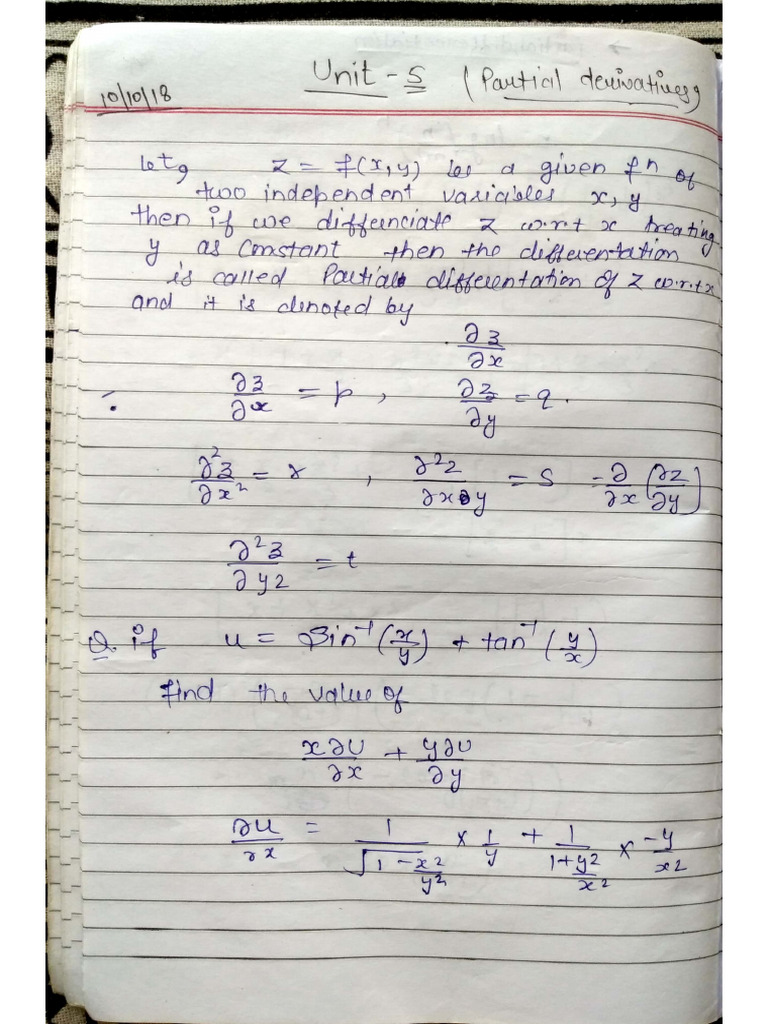 Unit - 5 (Partial derivatives)
10/10/18
let, z = f(x, y) be a given fn of
two independent variables x, y
then if we differnciate z w.r.t x treating
y as constant then the differentation
is called Partial differentation of z w.r.t x
and it is denoted by
∂z/∂x
∴ ∂z/∂x = p , ∂z/∂y = q .
∂²z/∂x² = r , ∂²z/∂x∂y = S = ∂/∂x (∂z/∂y)
∂²z/∂y² = t
Q. if u = Sin⁻¹ (x/y) + tan⁻¹ (y/x)
find the value of
x∂u/∂x + y∂u/∂y
∂u/∂x = 1/√(1-x²/y²) × 1/y + 1/(1+y²/x²) × -y/x²